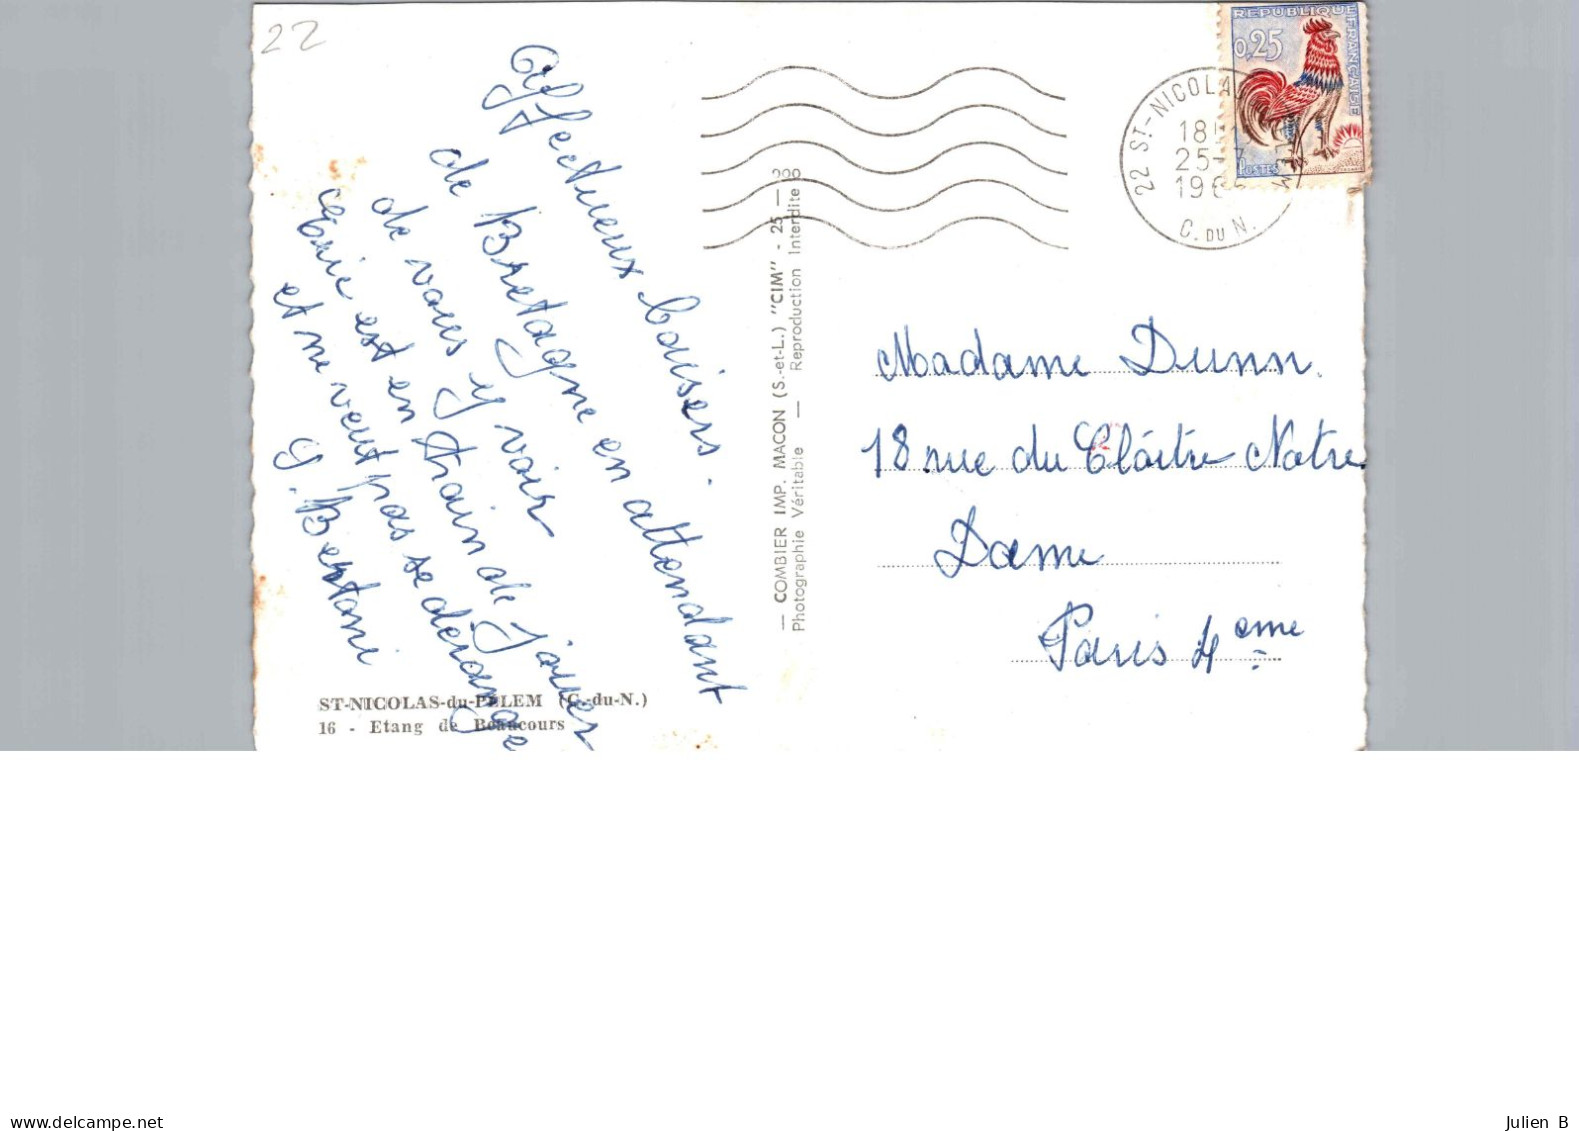 22
Affectueux baisers.
de Bretagne en attendant
de vous y voir
Eric est en train de jouer
et ne veut pas se dérange
G. Bertani
ST-NICOLAS-du-PELEM (C.-du-N.)
16 - Etang de Beaucours
— COMBIER IMP. MACON (S.-et-L.) "CIM" - 25 —
Photographie Véritable — Reproduction Interdite
REPUBLIQUE FRANÇAISE
0,25
POSTES
22 ST-NICOLA
18
25-7
196
C. DU N.
Madame Dunn.
18 rue du Cloître Notre
Dame
Paris 4eme
www.delcampe.net
Julien B